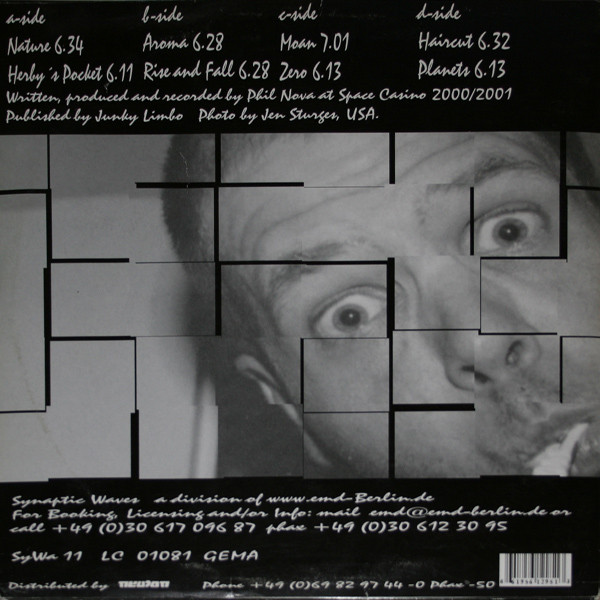 a-side b-side c-side d-side
Nature 6.34 Aroma 6.28 Moan 7.01 Haircut 6.32
Herby´s Pocket 6.11 Rise and Fall 6.28 Zero 6.13 Planets 6.13
Written, produced and recorded by Phil Nova at Space Casino 2000/2001
Published by Junky Limbo Photo by Jen Sturges, USA.
Synaptic Waves a division of www.emd-Berlin.de
For Booking, Licensing and/or Info: mail emd@emd-berlin.de or
call +49 (0)30 617 096 87 phax +49 (0)30 612 30 95
SyWa 11 LC 01081 GEMA
Distributed by neuton Phone +49 (0)69 82 97 44 -0 Phax -50